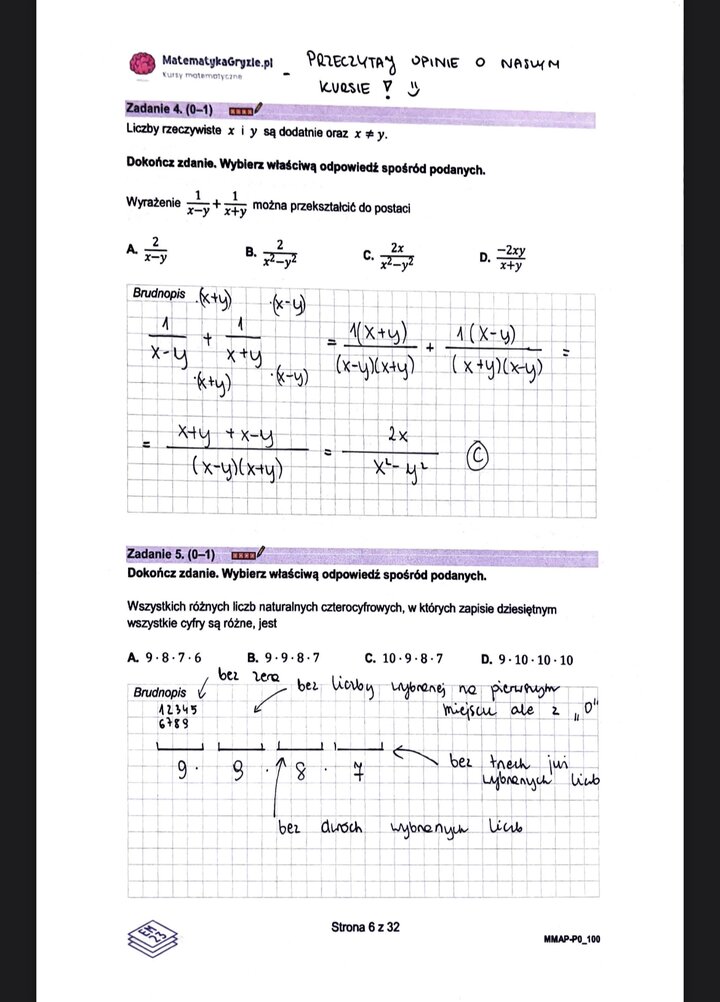 MatematykaGryzie.pl
Kursy matematyczne
- PRZECZYTAJ OPINIE O NASZYM
KURSIE ! :)
Zadanie 4. (0–1)
Liczby rzeczywiste x i y są dodatnie oraz x ≠ y.
Dokończ zdanie. Wybierz właściwą odpowiedź spośród podanych.
Wyrażenie 1/(x−y) + 1/(x+y) można przekształcić do postaci
A. 2/(x−y) B. 2/(x²−y²) C. 2x/(x²−y²) D. −2xy/(x+y)
Brudnopis ·(x+y) ·(x-y)
1/(x-y) + 1/(x+y) = 1(x+y)/((x-y)(x+y)) + 1(x-y)/((x+y)(x-y)) =
·(x+y) ·(x-y)
= (x+y+x-y)/((x-y)(x+y)) = 2x/(x²-y²) C
Zadanie 5. (0–1)
Dokończ zdanie. Wybierz właściwą odpowiedź spośród podanych.
Wszystkich różnych liczb naturalnych czterocyfrowych, w których zapisie dziesiętnym
wszystkie cyfry są różne, jest
A. 9·8·7·6 B. 9·9·8·7 C. 10·9·8·7 D. 9·10·10·10
bez zera
Brudnopis bez liczby wybranej na pierwszym
miejscu ale z „0"
12345
6789
9 · 9 · 8 · 7
bez trzech już
wybranych liczb
bez dwóch wybranych liczb
EM
23
Strona 6 z 32
MMAP-P0_100